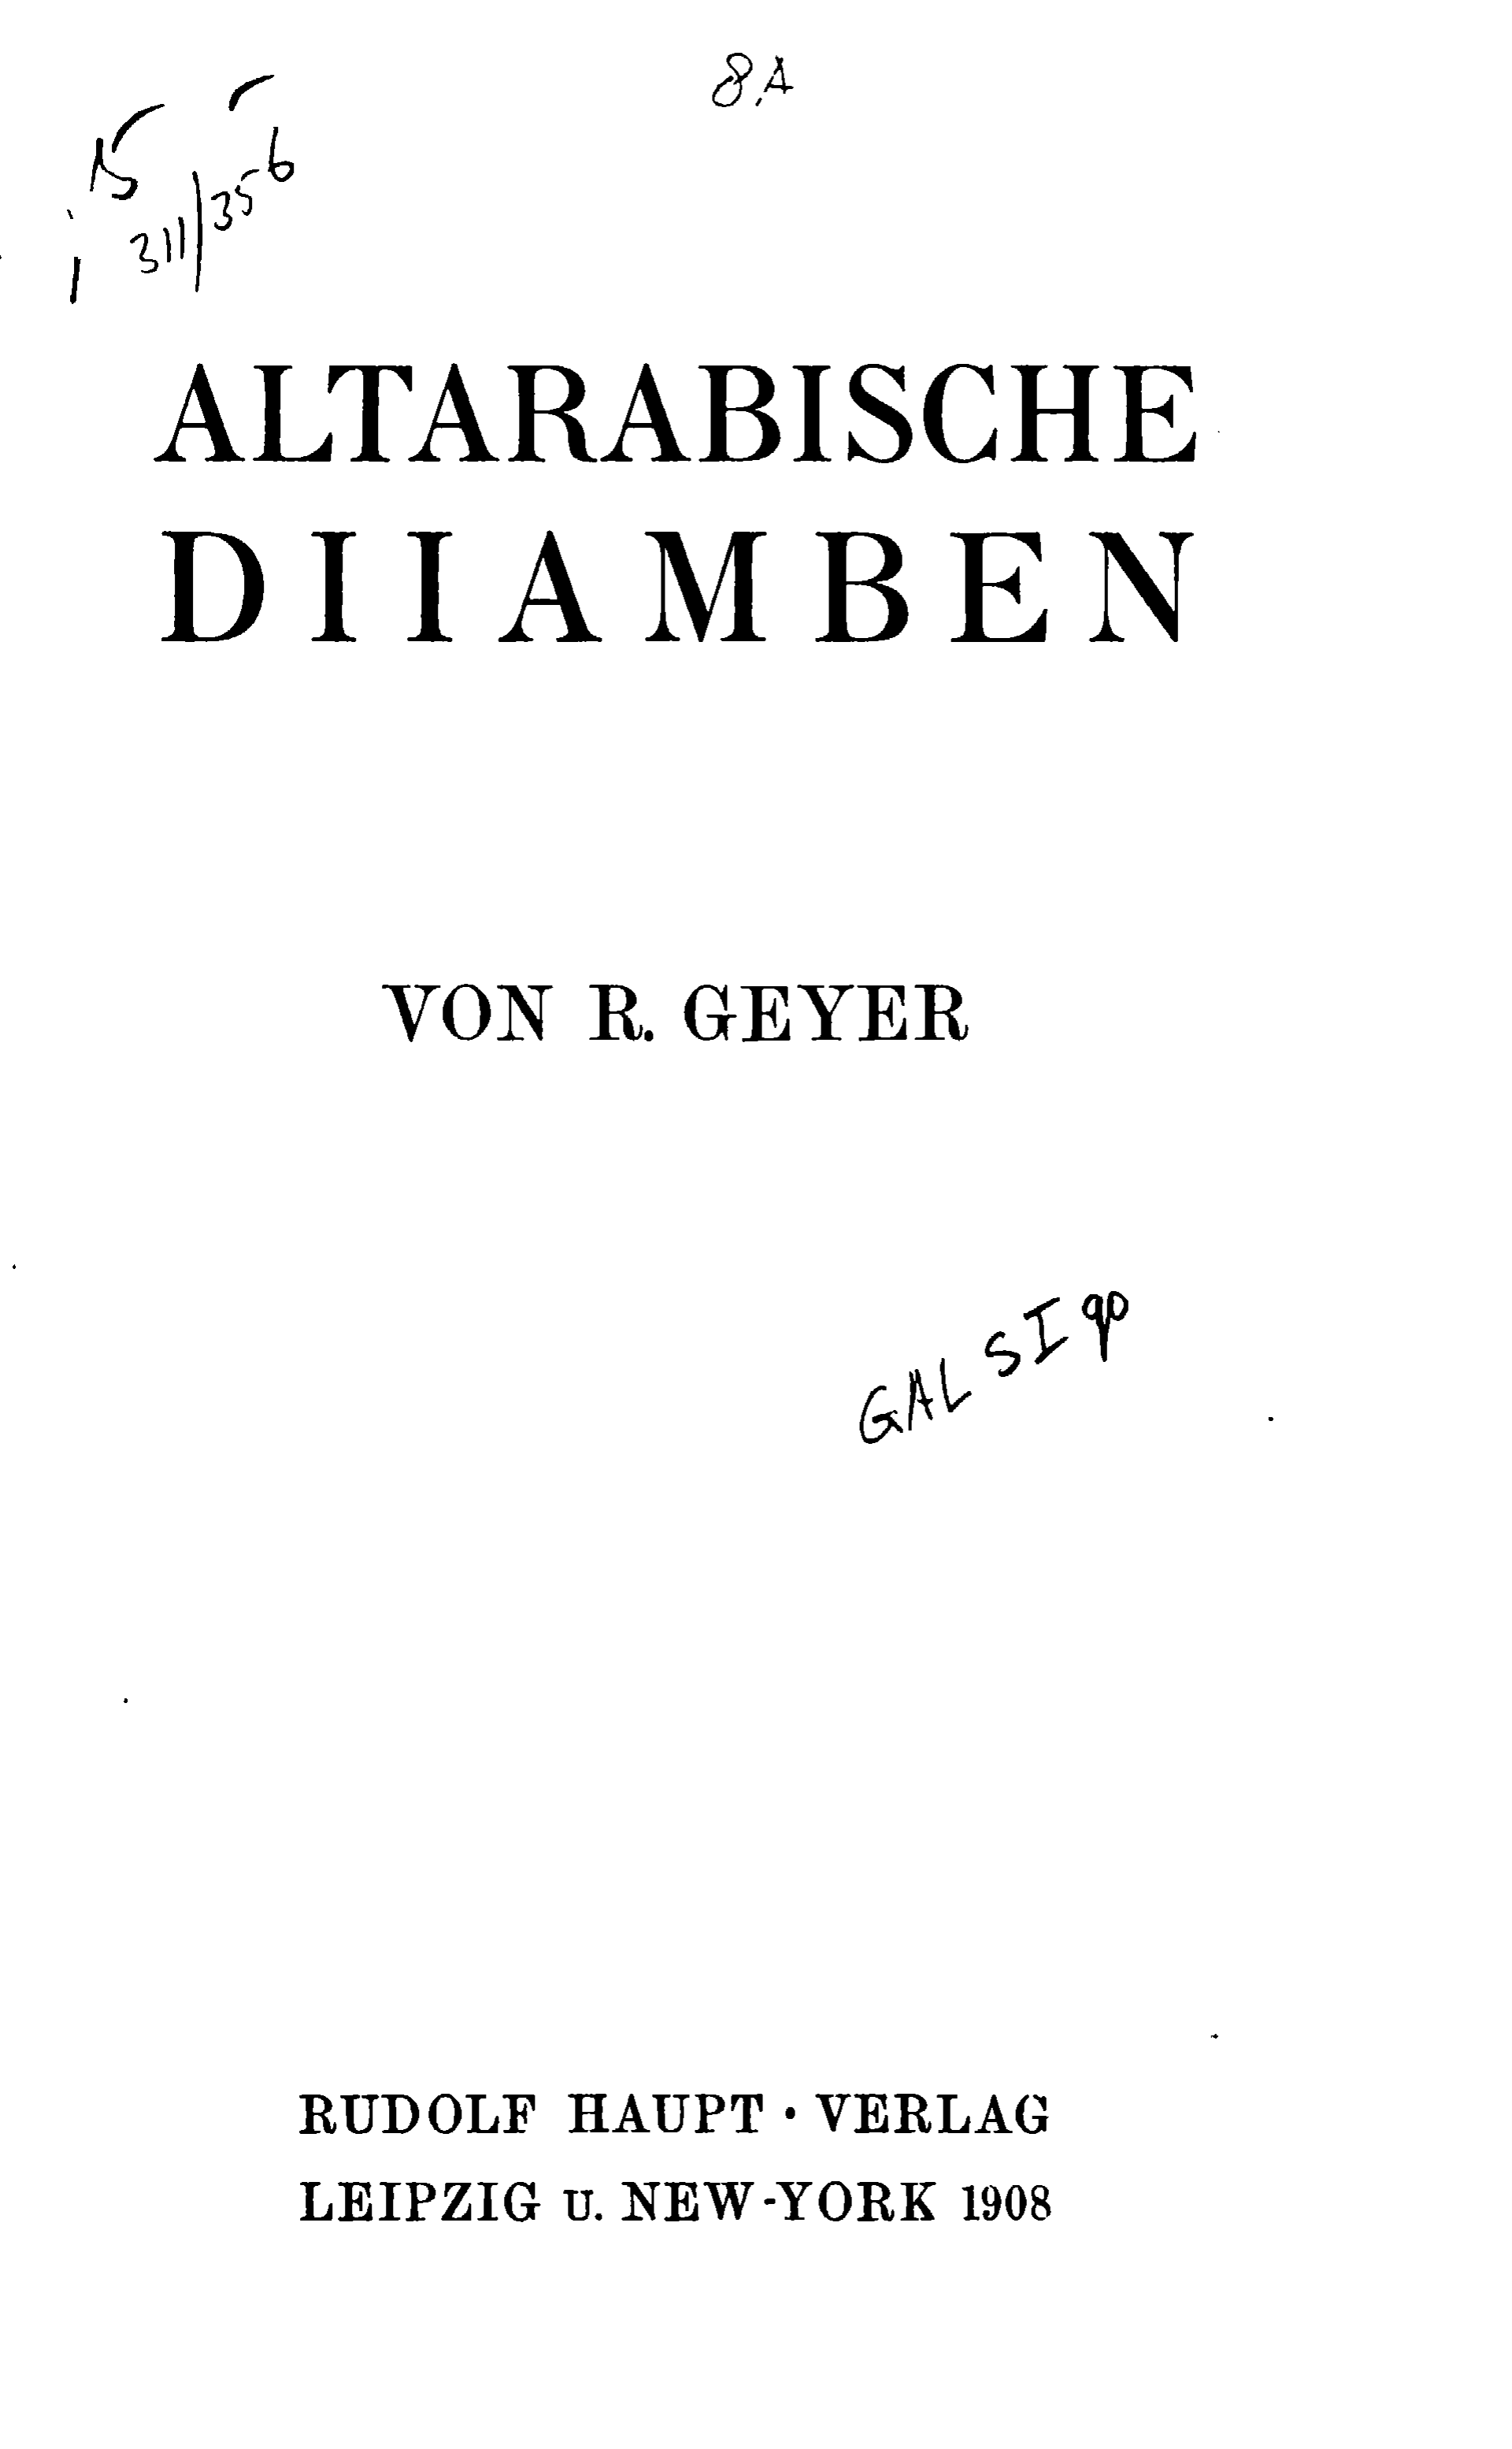 8A
15
311/356
ALTARABISCHE
DIIAMBEN
VON R. GEYER
GAL S I 90
RUDOLF HAUPT · VERLAG
LEIPZIG U. NEW-YORK 1908